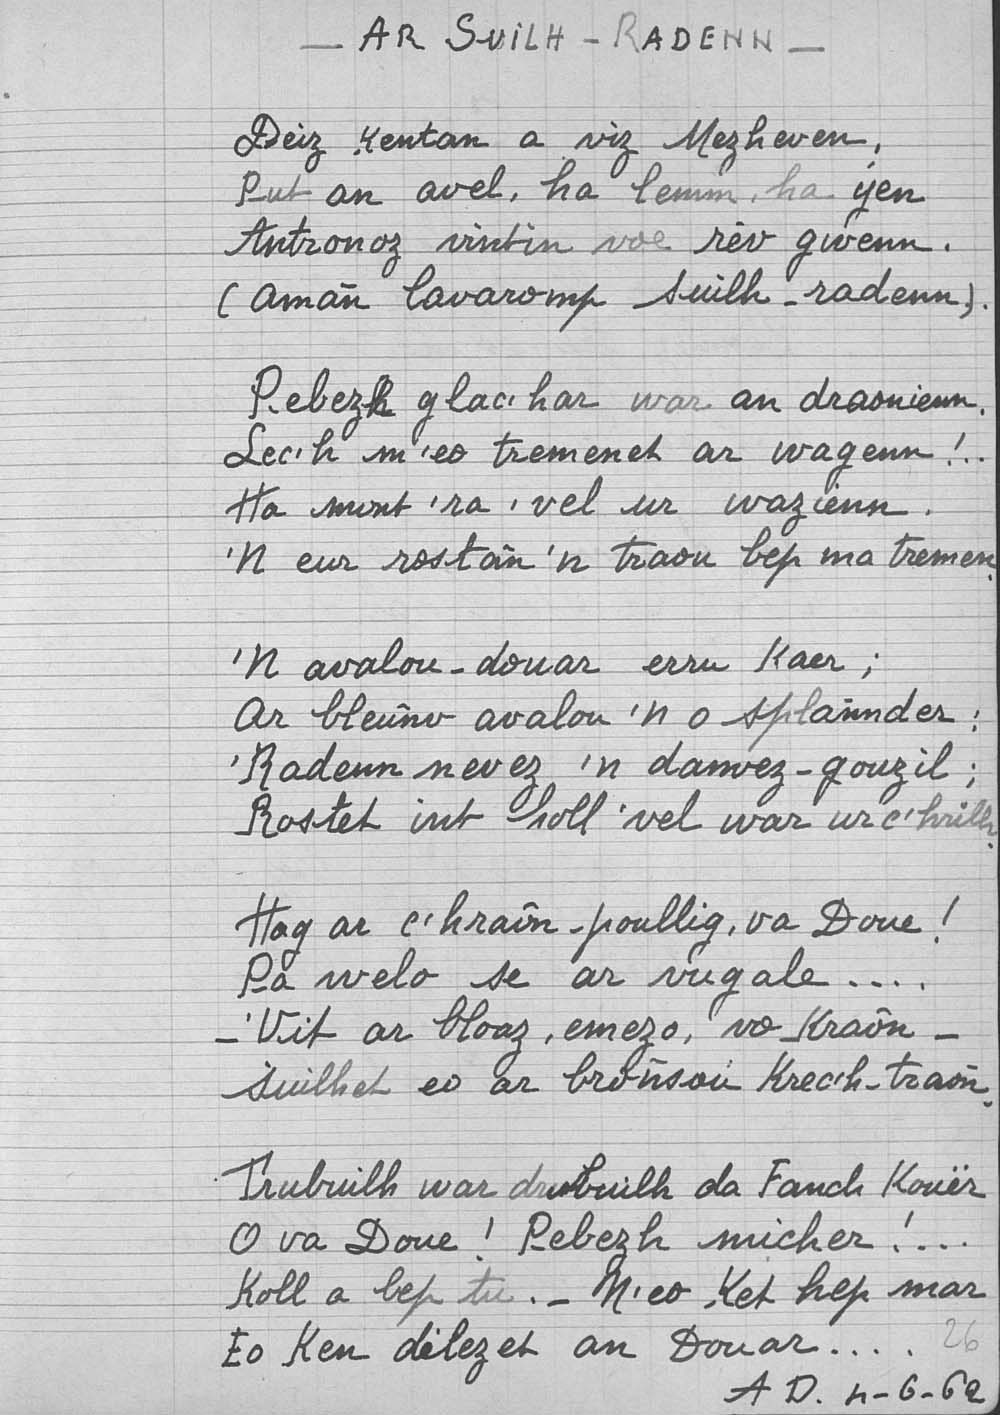 — AR SUILH - RADENN —
Deiz Kentan a viz Mezheven,
Put an avel, ha lemm, ha yen
Antronoz vintin voe rèv gwenn.
(Amañ lavaromp suilh-radenn).
Pebezh glac'har war an draonienn,
Lec'h m'eo tremenet ar wagenn !..
Ha mont 'ra 'vel ur wazienn.
'N eur rostañ 'n traou bep ma tremen.
'N avalou-douar erru Kaer ;
Ar bleuñv avalou 'n o splañnder ;
'Radenn nevez 'n danvez-gouzil ;
Rostet int holl 'vel war ur c'hrilh.
Hag ar c'hraoñ-poullig, va Doue !
Pa welo se ar vugale ....
- 'Vit ar bloaz, emezo, vo Kraoñ -
Suilhet eo ar broñsoù Krec'h-traoñ.
Trubuilh war drubuilh da Fanch Kouër
O va Doue ! Pebezh micher !...
Koll a bep tu. - N'eo Ket hep mar
Eo Ken dilezet an Douar ....
26
A D. 4-6-62